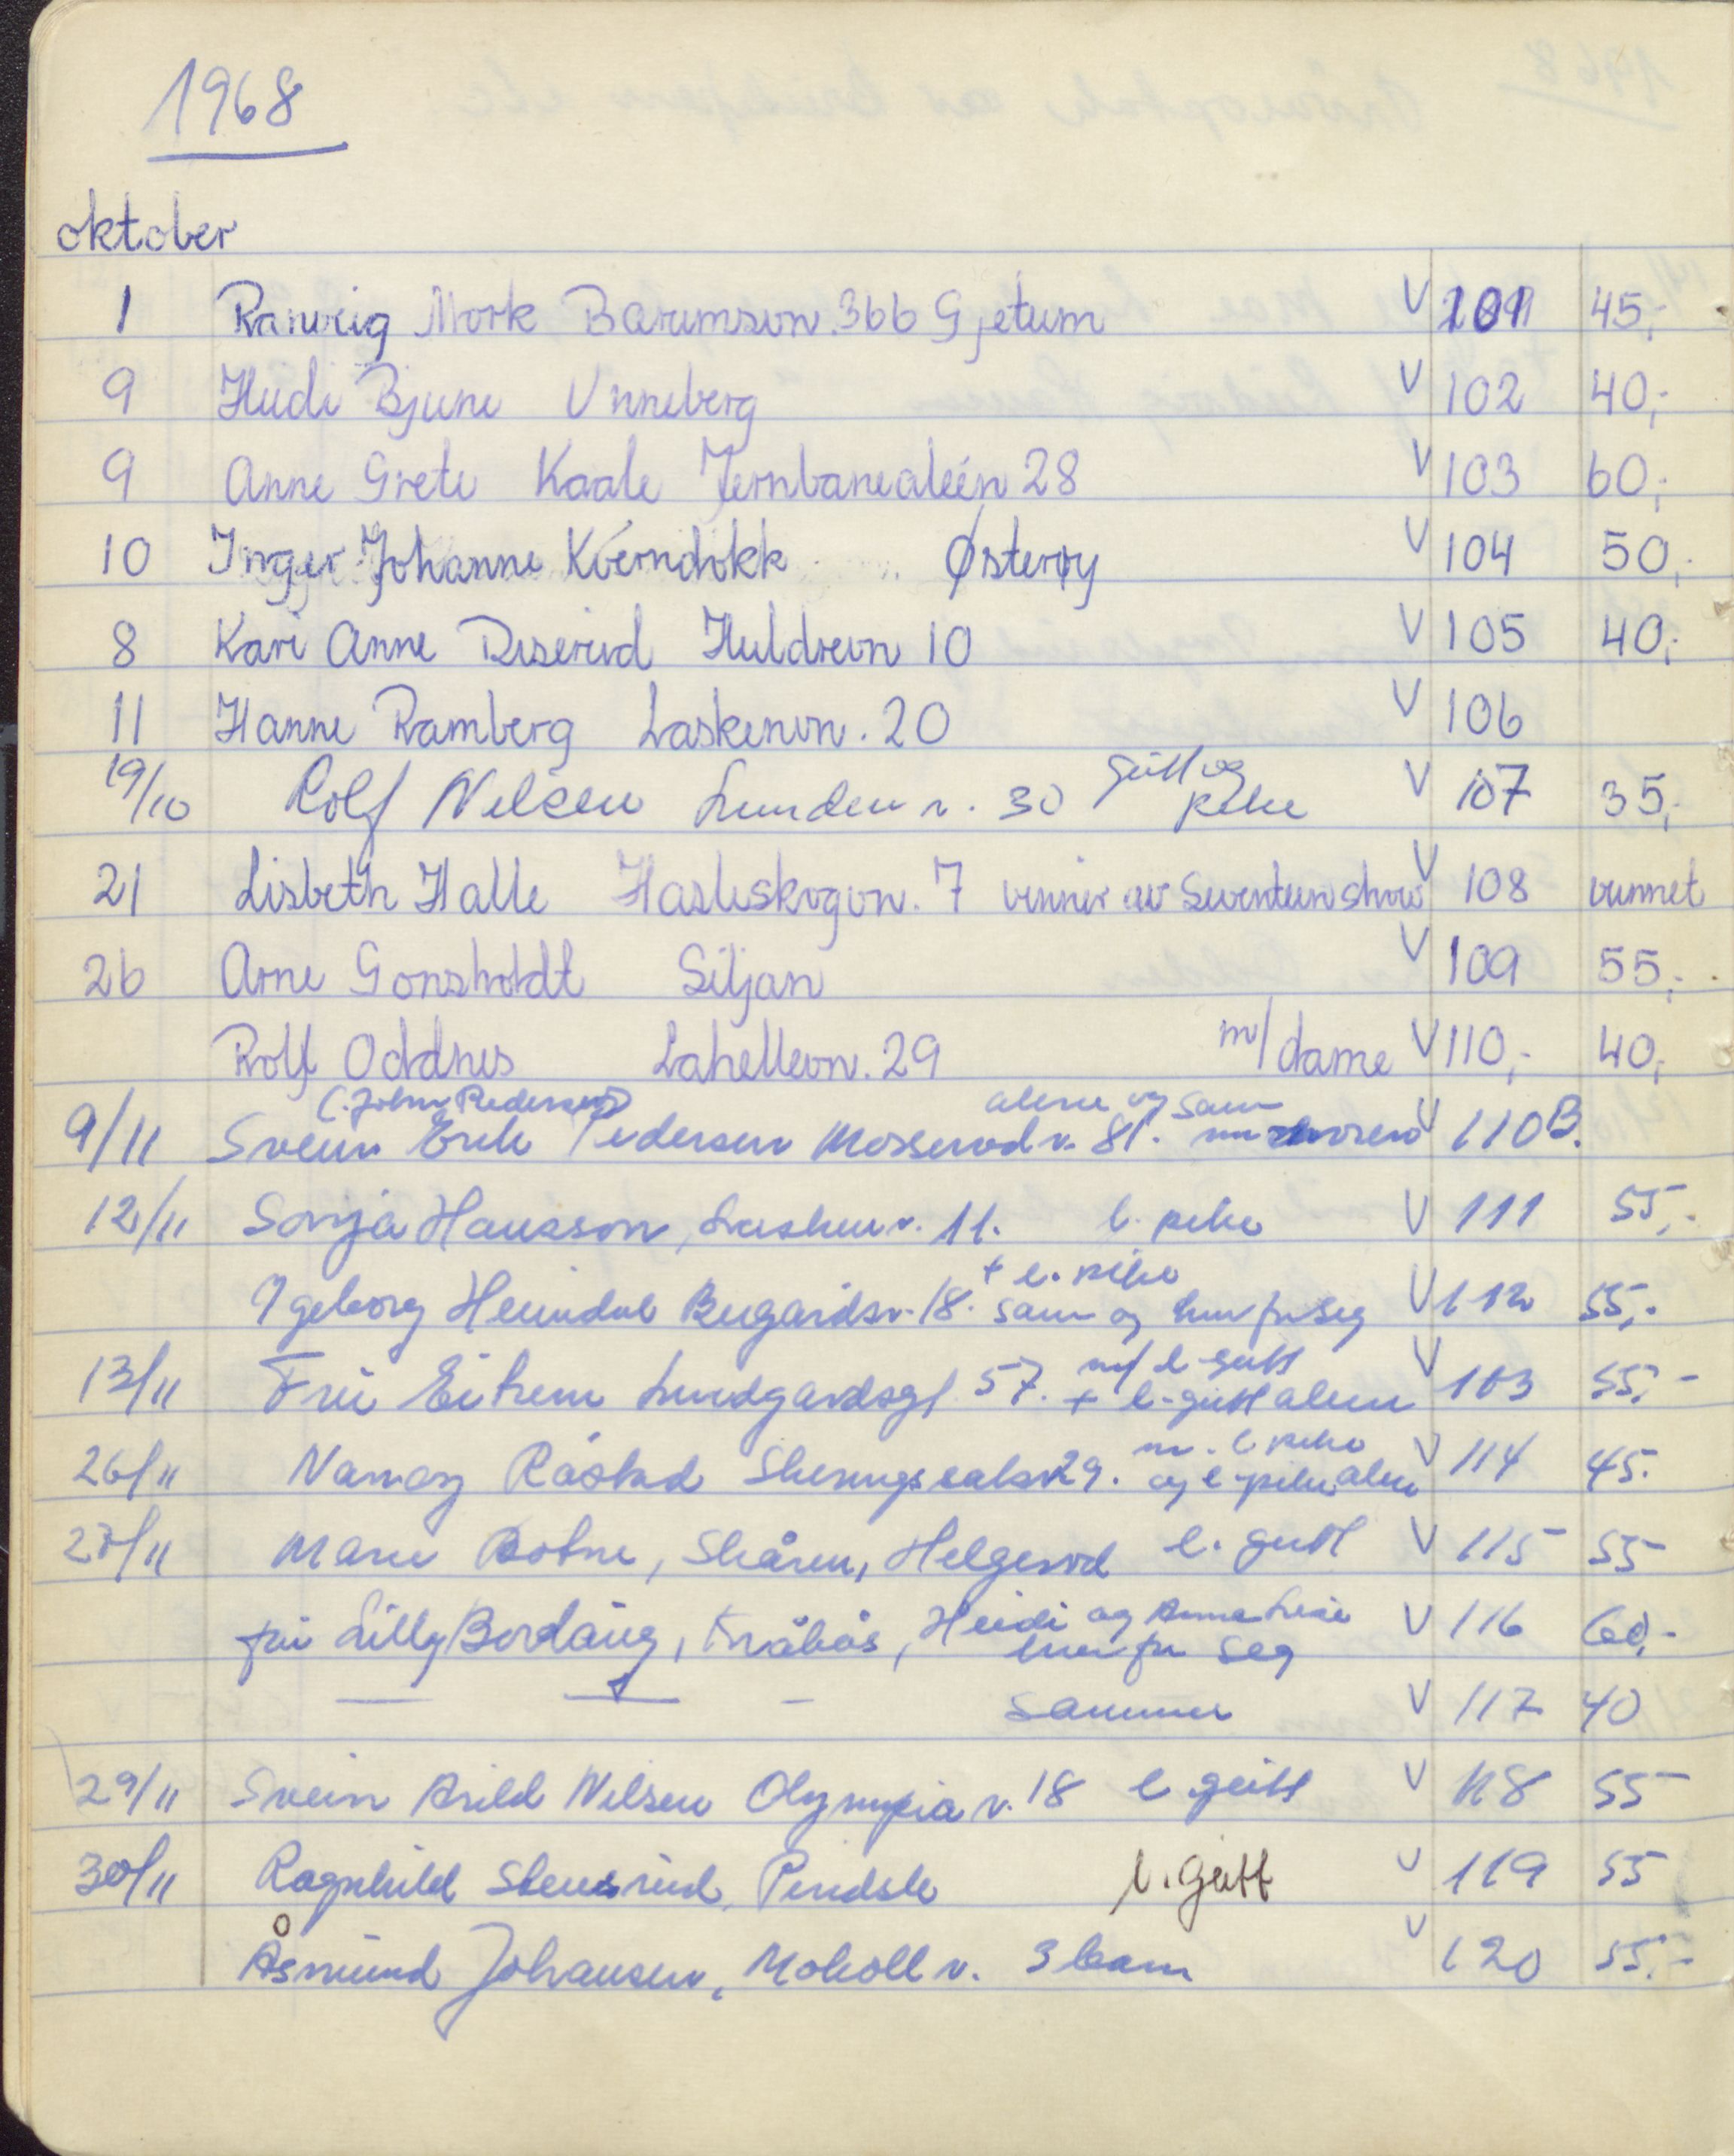 1968
oktober
1 Ranveig Mork Bærumsvn. 366 Gjetum V 101 45,-
9 Heidi Bjune Unneberg V 102 40,-
9 Anne Grete Kaale Jernbanealeén 28 V 103 60,-
10 Inger Johanne Kverndokk Østerøy V 104 50,-
8 Kari Anne Diserud Huldrevn 10 V 105 40,-
11 Hanne Ramberg Laskenvn. 20 V 106
19/10 Rolf Nilsen Lunden v. 30 gutt og pike V 107 35,-
21 Lisbeth Halle Hasleskogvn. 7 vinner av Seventeen show V 108 vunnet
26 Arne Gonsholdt Siljan V 109 55,-
Rolf Oddnes Lahellevn. 29 m/dame V 110,- 40,-
(John Pedersen) alene og sam
9/11 Svein Erik Pedersen Mosserod v. 81. V 110B.
12/11 Sonja Hansson, Lasken v. 11. l. pike V 111 55,-
+ l. pike
Igeborg Heimdal Bugårdsv. 18. sam og hver for seg V 112 55,-
m/ l. gutt
13/11 Fru Eitrem Lundgårdsgt 57. + l. gutt alene V 113 55,-
m. l. pike
26/11 Råstad 29. og l. pike alene V 114 45.
27/11 Botne, Skåren, Helgerød l. gutt V 115 55
fru Lilly Bordåug, Kråkås, Heidi og Anne Lise V 116 60,-
hver for seg
— " — - sammen V 117 40
29/11 Svein Arild Nilsen Olympia v. 18 l. gutt V 118 55
30/11 Ragnhild Stensrud, Pindsle l. gutt V 119 55
Åsmund Johansen, Moholl v. 3 barn V 120 55,-